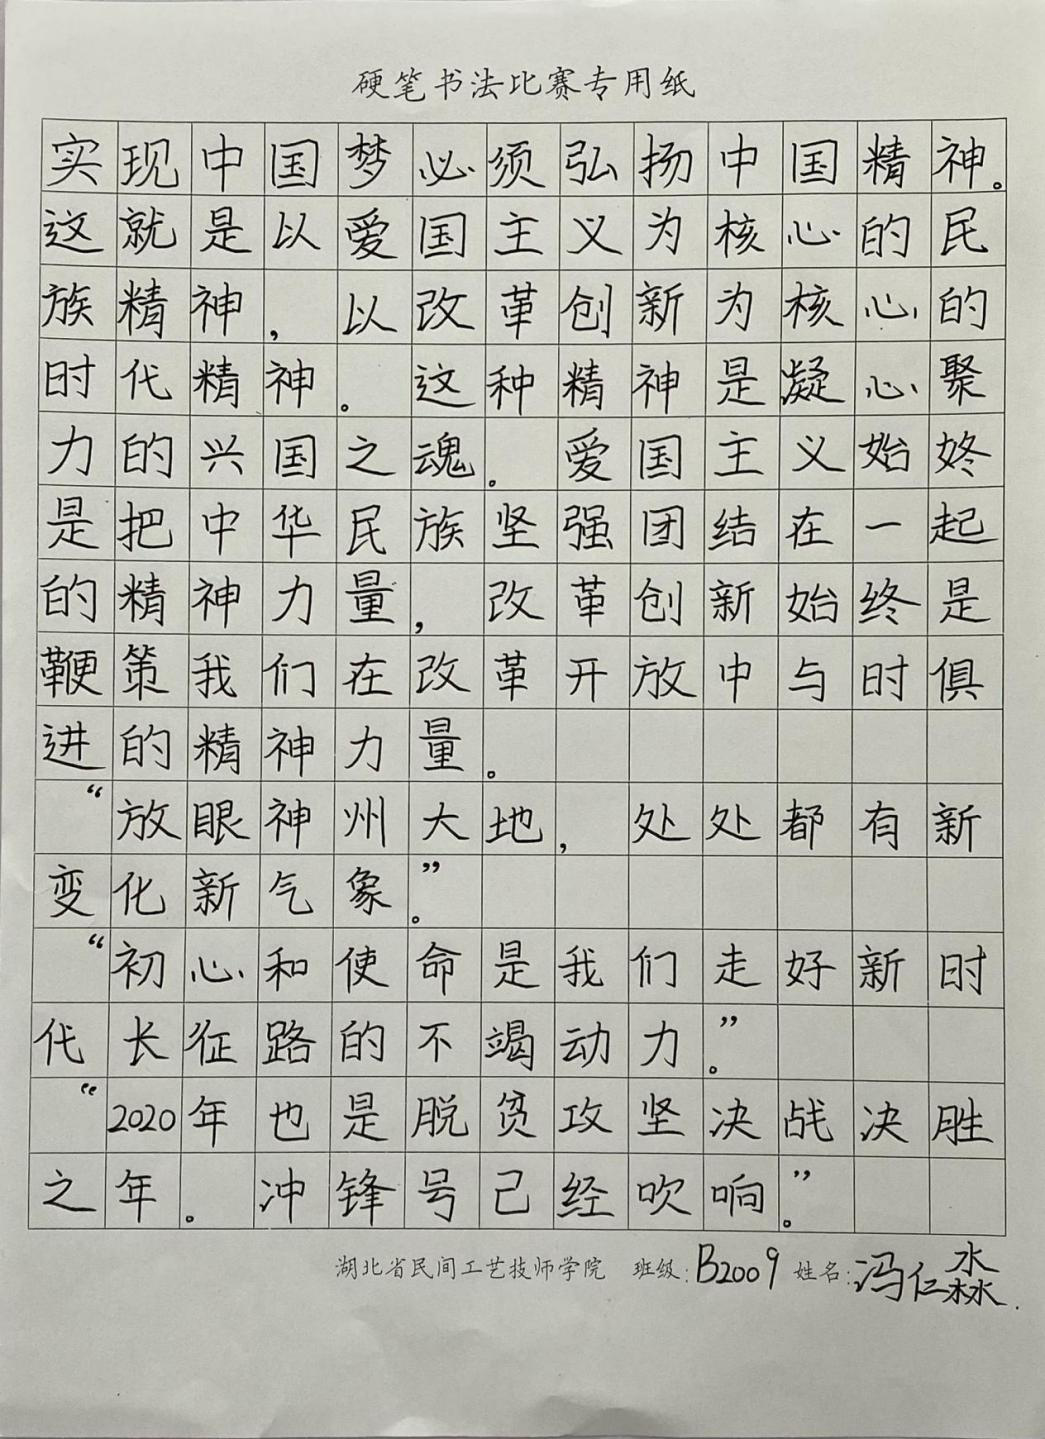 硬笔书法比赛专用纸
实现中国梦必须弘扬中国精神。
这就是以爱国主义为核心的民
族精神，以改革创新为核心的
时代精神。这种精神是凝心聚
力的兴国之魂。爱国主义始终
是把中华民族坚强团结在一起
的精神力量，改革创新始终是
鞭策我们在改革开放中与时俱
进的精神力量。
“放眼神州大地，处处都有新
变化新气象。”
“初心和使命是我们走好新时
代长征路的不竭动力。”
“2020年也是脱贫攻坚决战决胜
之年。冲锋号已经吹响。”
湖北省民间工艺技师学院 班级：B2009 姓名：冯仁淼